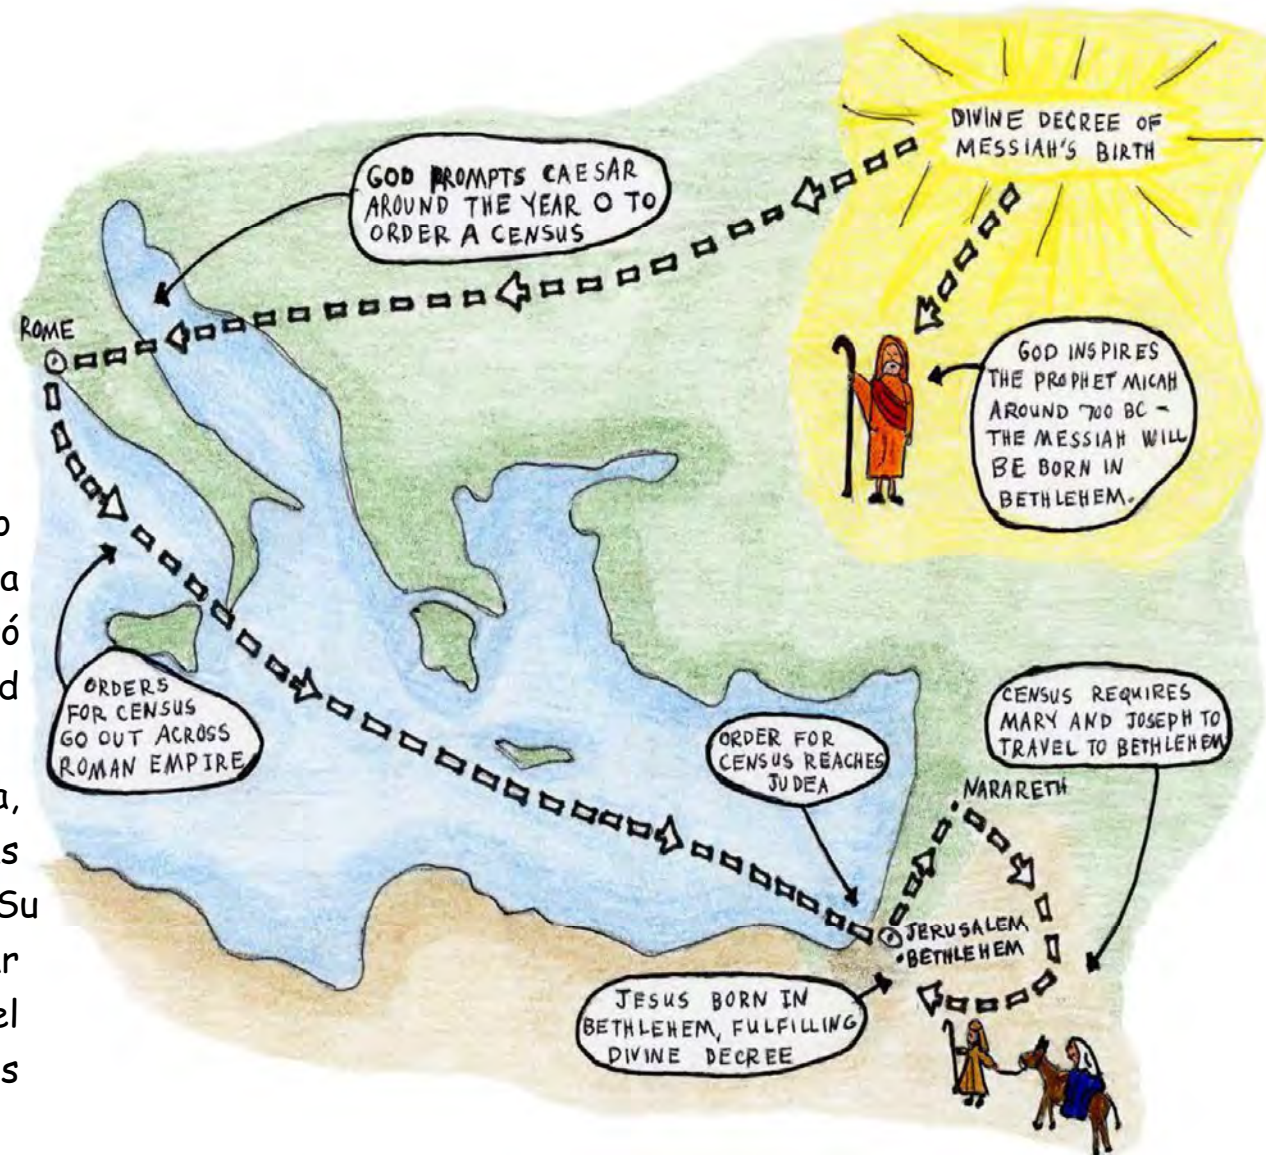 DIVINE DECREE OF
MESSIAH'S BIRTH
GOD PROMPTS CAESAR
AROUND THE YEAR 0 TO
ORDER A CENSUS
ROME
GOD INSPIRES
THE PROPHET MICAH
AROUND 700 BC -
THE MESSIAH WILL
BE BORN IN
BETHLEHEM.
o
a
ó
d
a,
s
Su
ar
el
s
ORDERS
FOR CENSUS
GO OUT ACROSS
ROMAN EMPIRE
ORDER FOR
CENSUS REACHES
JUDEA
CENSUS REQUIRES
MARY AND JOSEPH TO
TRAVEL TO BETHLEHEM
NARARETH
JERUSALEM
BETHLEHEM
JESUS BORN IN
BETHLEHEM, FULFILLING
DIVINE DECREE